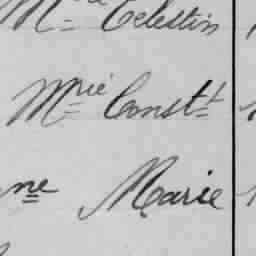 M Celestin
Mrie Constt
ne Marie